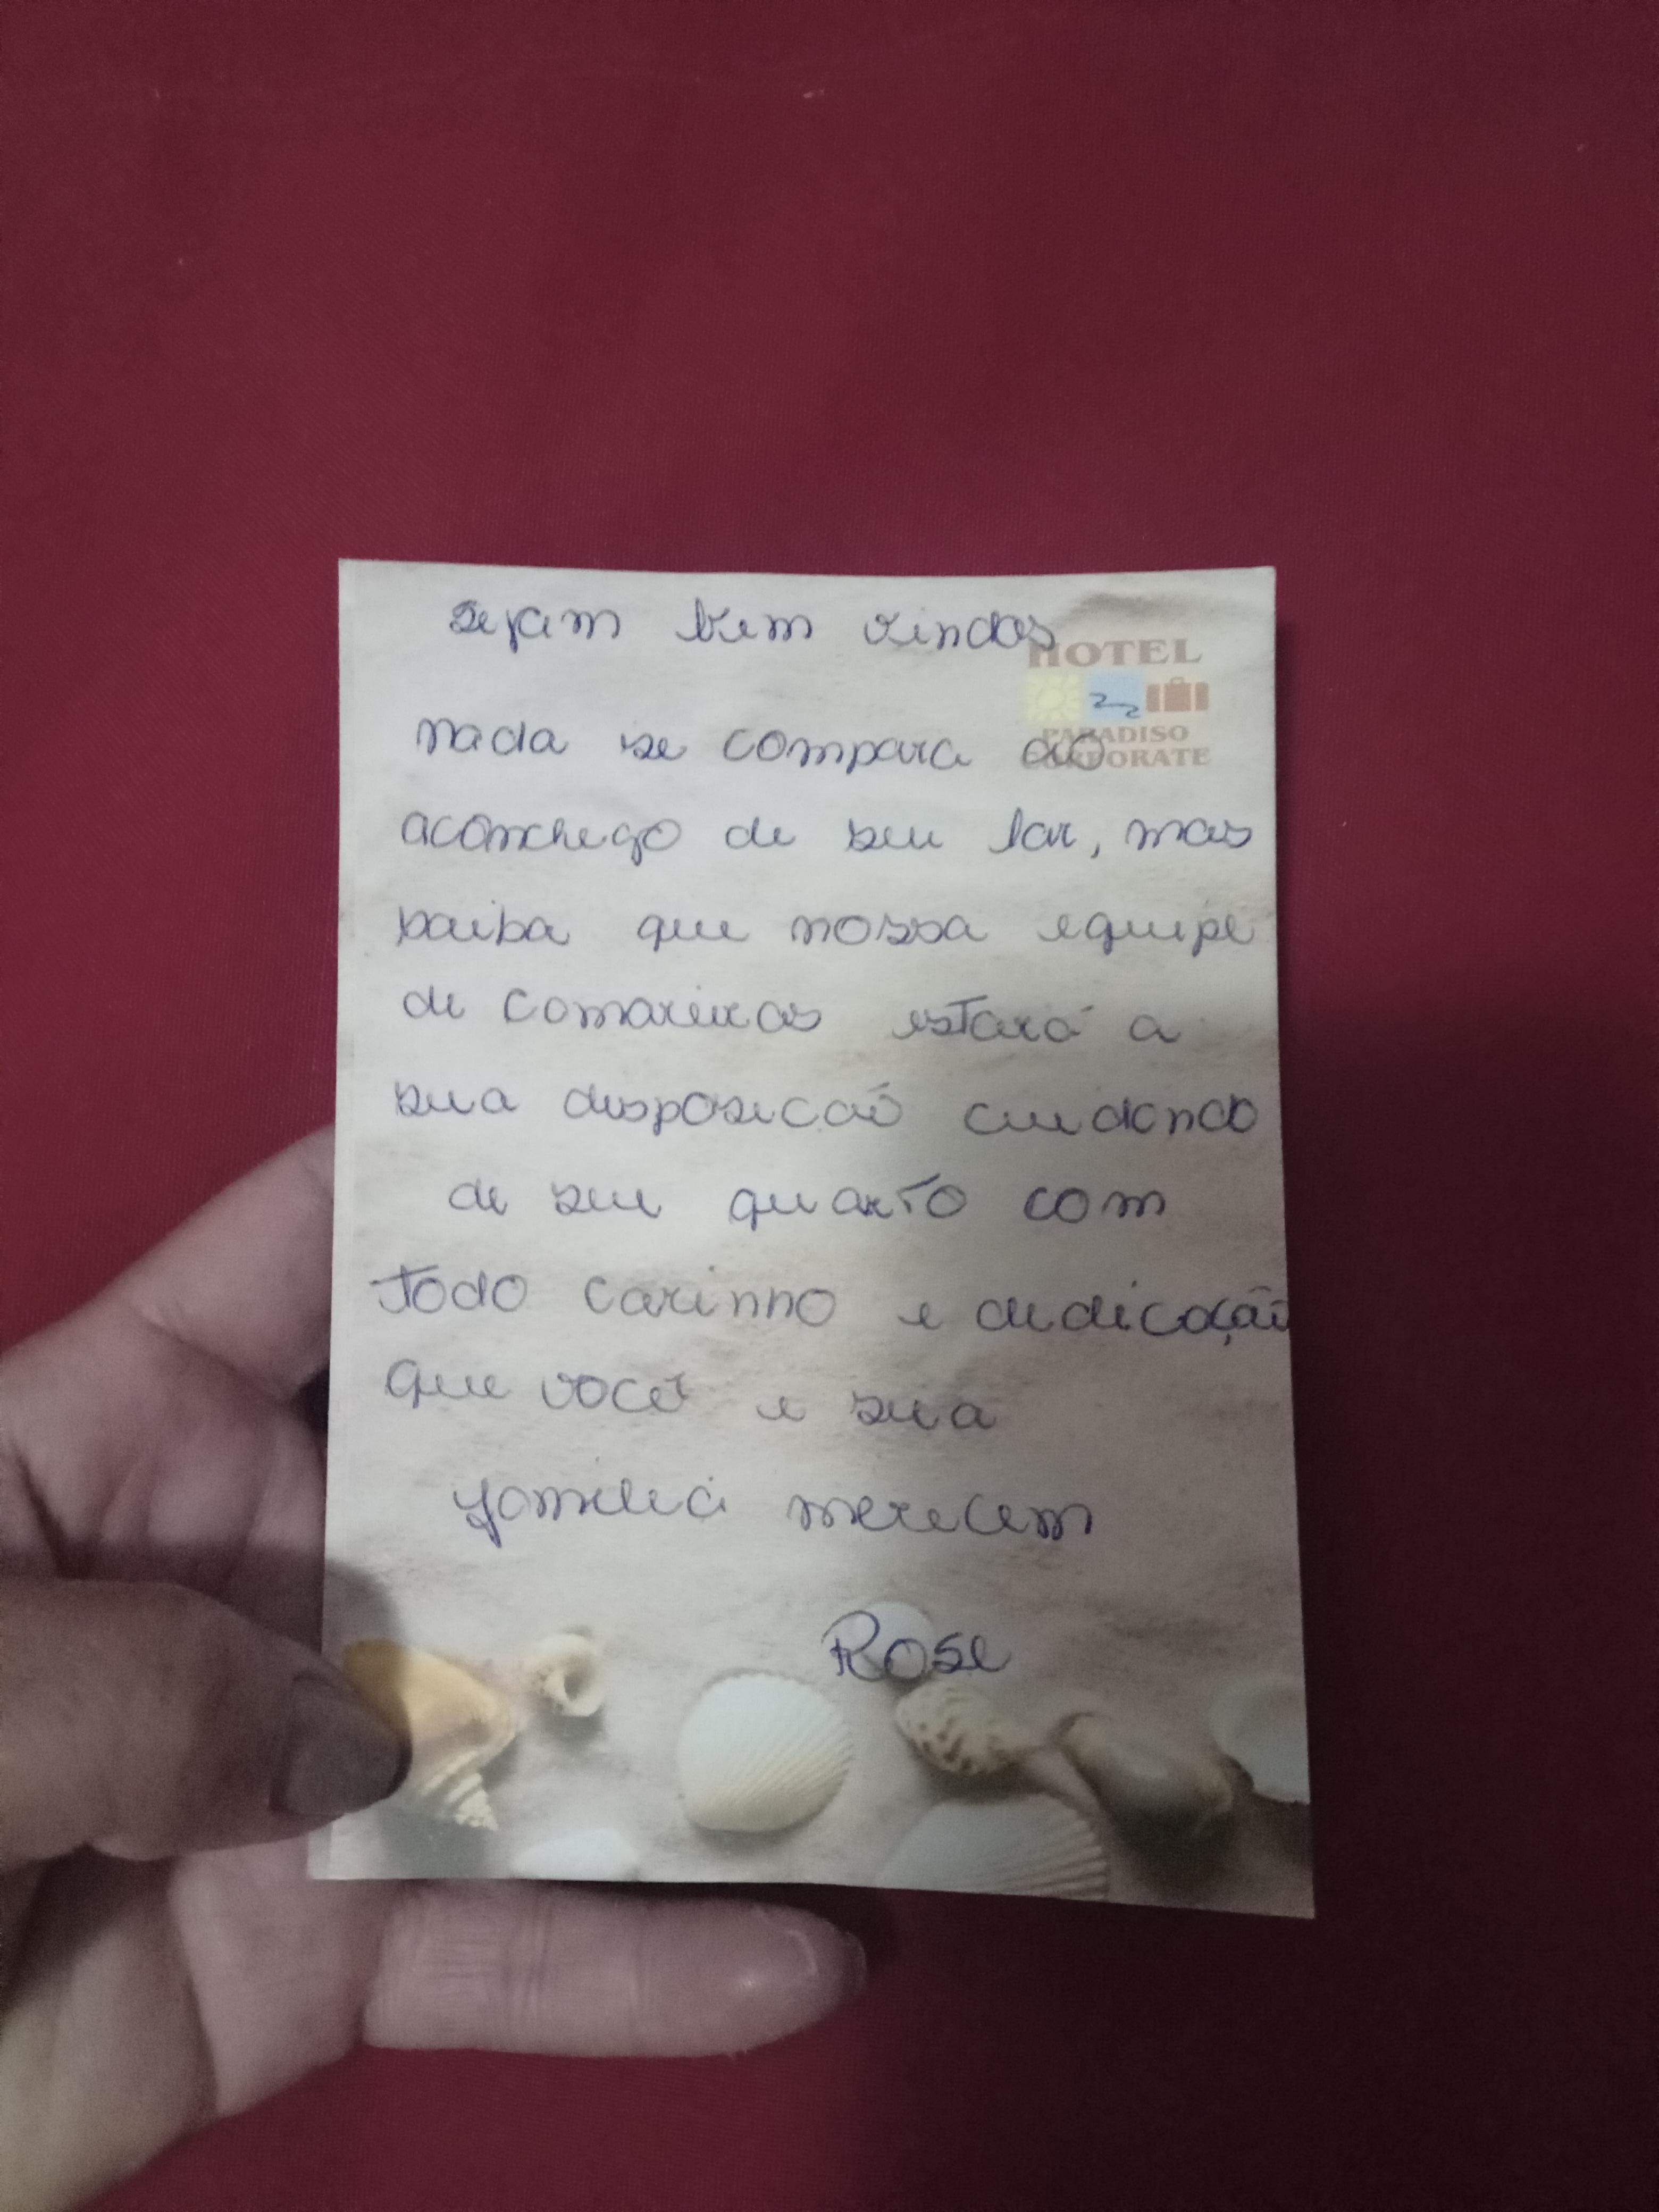 sejam bem vindos
HOTEL
PARADISO
CORPORATE
nada se compara ao
aconchego de seu lar, mas
saiba que nossa equipe
de camareiras estará a
sua disposicão cuidando
de seu quarto com
todo carinho e dedicação
que você e sua
familia merecem
Rose